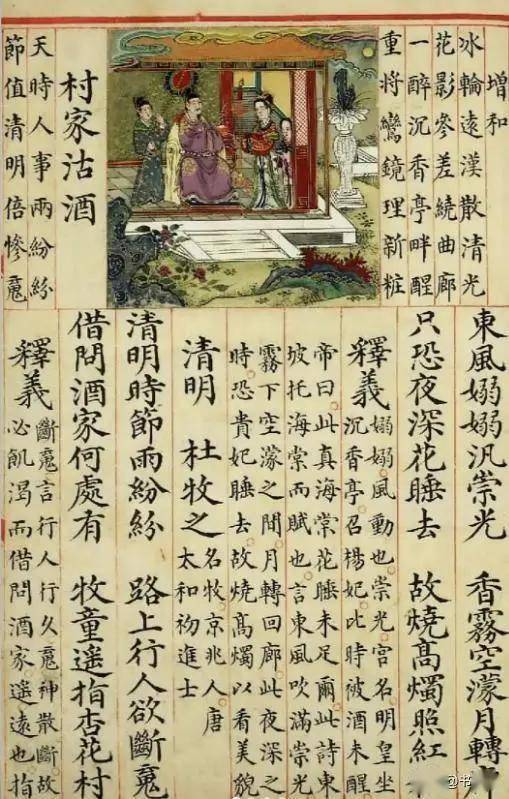 增和
冰輪遠漢散清光
花影參差繞曲廊
一醉沉香亭畔醒
重將鸞鏡理新粧
村家沽酒
天時人事兩紛紛
節值清明倍慘䰟
東風嫋嫋汎崇光 香霧空濛月轉
只恐夜深花睡去 故燒高燭照紅
釋義 嫋嫋風動也崇光宮名明皇坐
沉香亭召楊妃比時被酒未醒
帝曰此真海棠花睡未足爾此詩東
坡托海棠而賦也言東風吹滿崇光
霧下空濛之間月轉回廊此夜深之
時恐貴妃睡去故燒高燭以看美貌
清明 杜牧之 名牧京兆人唐
太和初進士
清明時節雨紛紛 路上行人欲斷䰟
借問酒家何處有 牧童遙指杏花村
釋義 斷䰟言行人行久䰟神散斷故
必飢渴而借問酒家遙遠也指
@书